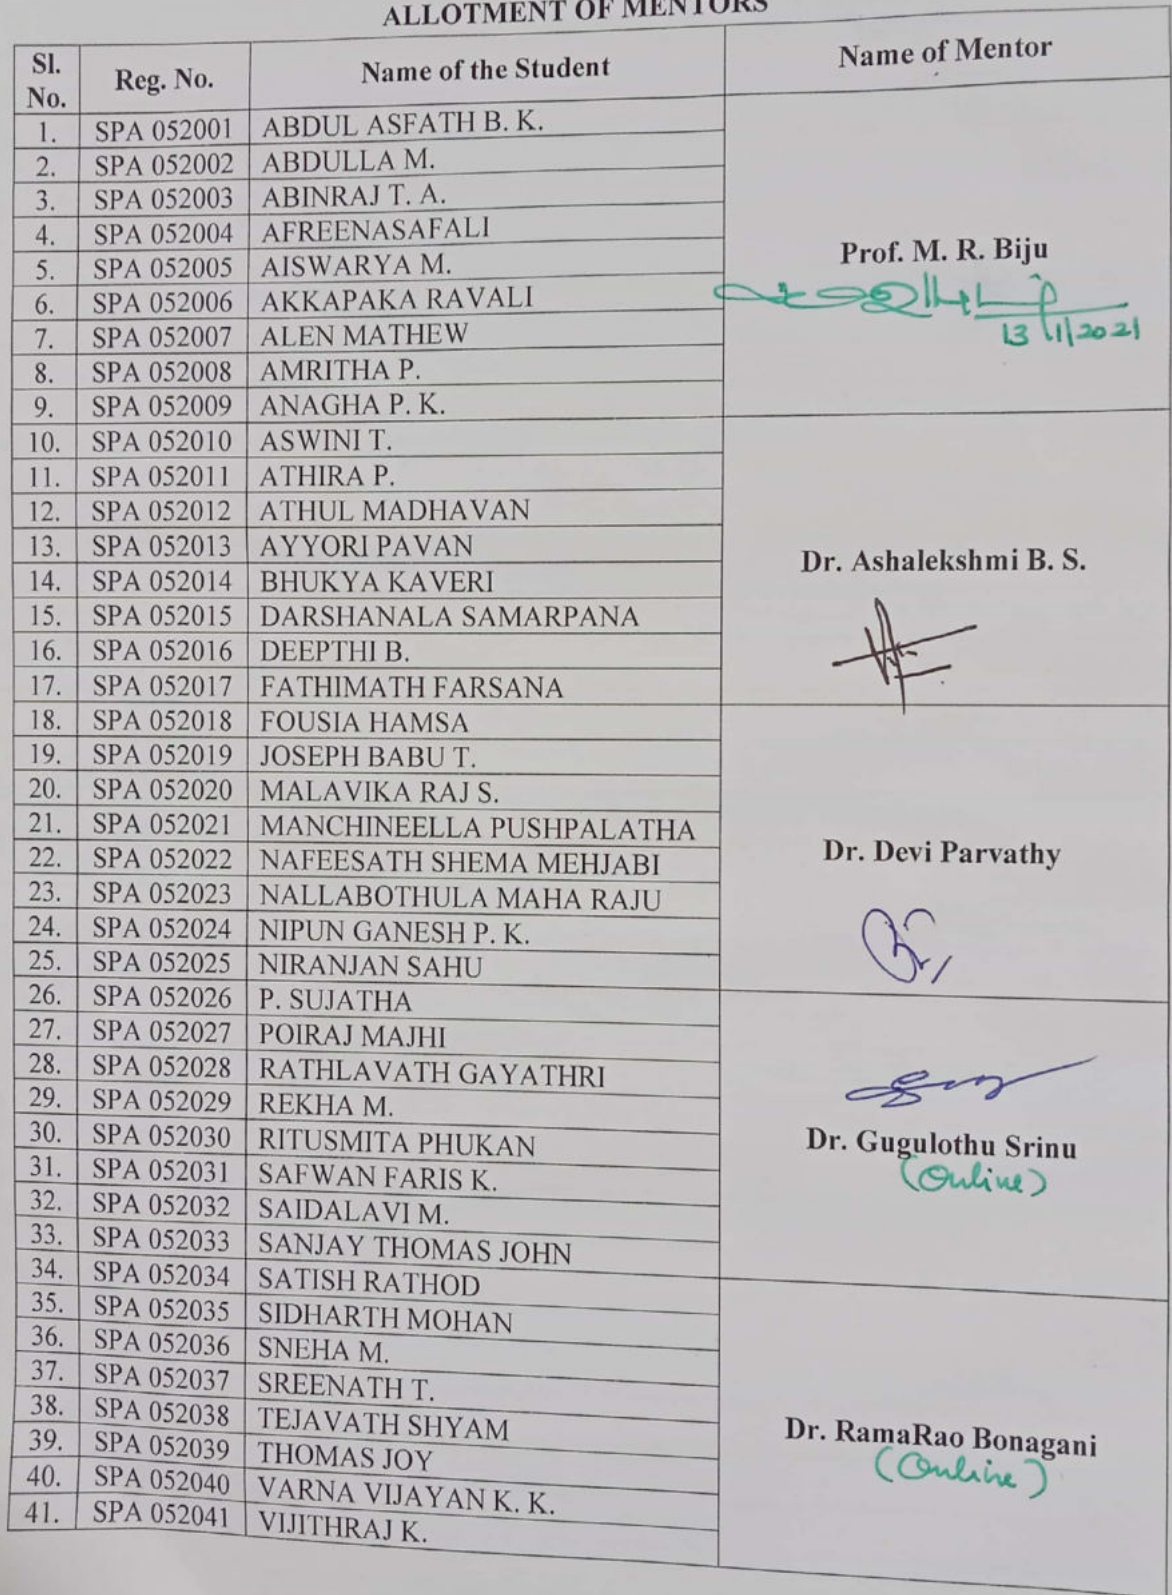 ALLOTMENT OF MENTORS
Sl. No. Reg. No. Name of the Student Name of Mentor
1. SPA 052001 ABDUL ASFATH B. K.
2. SPA 052002 ABDULLA M.
3. SPA 052003 ABINRAJ T. A.
4. SPA 052004 AFREENASAFALI
5. SPA 052005 AISWARYA M.
6. SPA 052006 AKKAPAKA RAVALI
7. SPA 052007 ALEN MATHEW
8. SPA 052008 AMRITHA P.
9. SPA 052009 ANAGHA P. K.
Prof. M. R. Biju
13/1/2021
10. SPA 052010 ASWINI T.
11. SPA 052011 ATHIRA P.
12. SPA 052012 ATHUL MADHAVAN
13. SPA 052013 AYYORI PAVAN
14. SPA 052014 BHUKYA KAVERI
15. SPA 052015 DARSHANALA SAMARPANA
16. SPA 052016 DEEPTHI B.
17. SPA 052017 FATHIMATH FARSANA
Dr. Ashalekshmi B. S.
18. SPA 052018 FOUSIA HAMSA
19. SPA 052019 JOSEPH BABU T.
20. SPA 052020 MALAVIKA RAJ S.
21. SPA 052021 MANCHINEELLA PUSHPALATHA
22. SPA 052022 NAFEESATH SHEMA MEHJABI
23. SPA 052023 NALLABOTHULA MAHA RAJU
24. SPA 052024 NIPUN GANESH P. K.
25. SPA 052025 NIRANJAN SAHU
Dr. Devi Parvathy
26. SPA 052026 P. SUJATHA
27. SPA 052027 POIRAJ MAJHI
28. SPA 052028 RATHLAVATH GAYATHRI
29. SPA 052029 REKHA M.
30. SPA 052030 RITUSMITA PHUKAN
31. SPA 052031 SAFWAN FARIS K.
32. SPA 052032 SAIDALAVI M.
33. SPA 052033 SANJAY THOMAS JOHN
Dr. Gugulothu Srinu
(Online)
34. SPA 052034 SATISH RATHOD
35. SPA 052035 SIDHARTH MOHAN
36. SPA 052036 SNEHA M.
37. SPA 052037 SREENATH T.
38. SPA 052038 TEJAVATH SHYAM
39. SPA 052039 THOMAS JOY
40. SPA 052040 VARNA VIJAYAN K. K.
41. SPA 052041 VIJITHRAJ K.
Dr. RamaRao Bonagani
(Online)